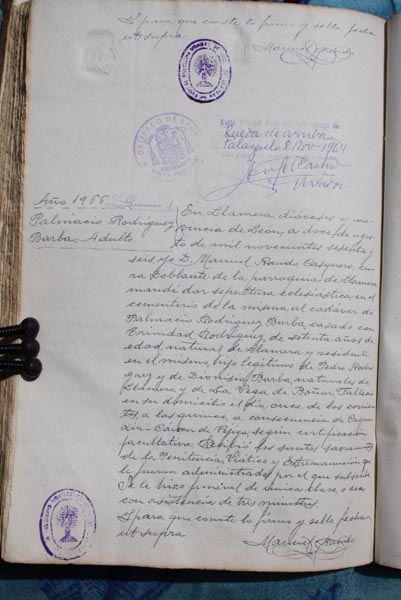 Y para que conste lo firmo y sello fecha
ut supra.
Manuel Rando
OBISPADO DE LEON
Rueda de arriba
Palazuelo 8 Nov-1964
Visitador
Año 1966. Número 1
Palmacio Rodríguez
Barba - Adulto.
En Llamera, diócesis y pro-
vincia de León, a doce de agos
to de mil novecientos sesenta y
seis yo D. Manuel Rando Casquero, cu
ra Doblante de la parroquia de Llamera
mandé dar sepultura eclesiástica, en el
cementerio de la misma, al cadáver de
Palmacio Rodríguez Barba, casado con
Trinidad Rodríguez, de setenta años de
edad, natural de Llamera y residente
en el mismo, hijo legítimo de Pedro Rodrí
guez y de Dionisia Barba, naturales de
Llamera y de La Vega de Boñar. Falleció
en su domicilio el día once de los corrien
tes, a las quince, a consecuencia de Caque
xia - Cáncer de Vejiga, según certificación
facultativa. Recibió los santos sacramentos
de la Penitencia, Viático y Extremaunción que
le fueron administrados por el que subscribe
Se le hizo funeral de única clase, o sea
con asistencia de tres ministros.
Y para que conste lo firmo y sello fecha
ut supra.
Manuel Rando